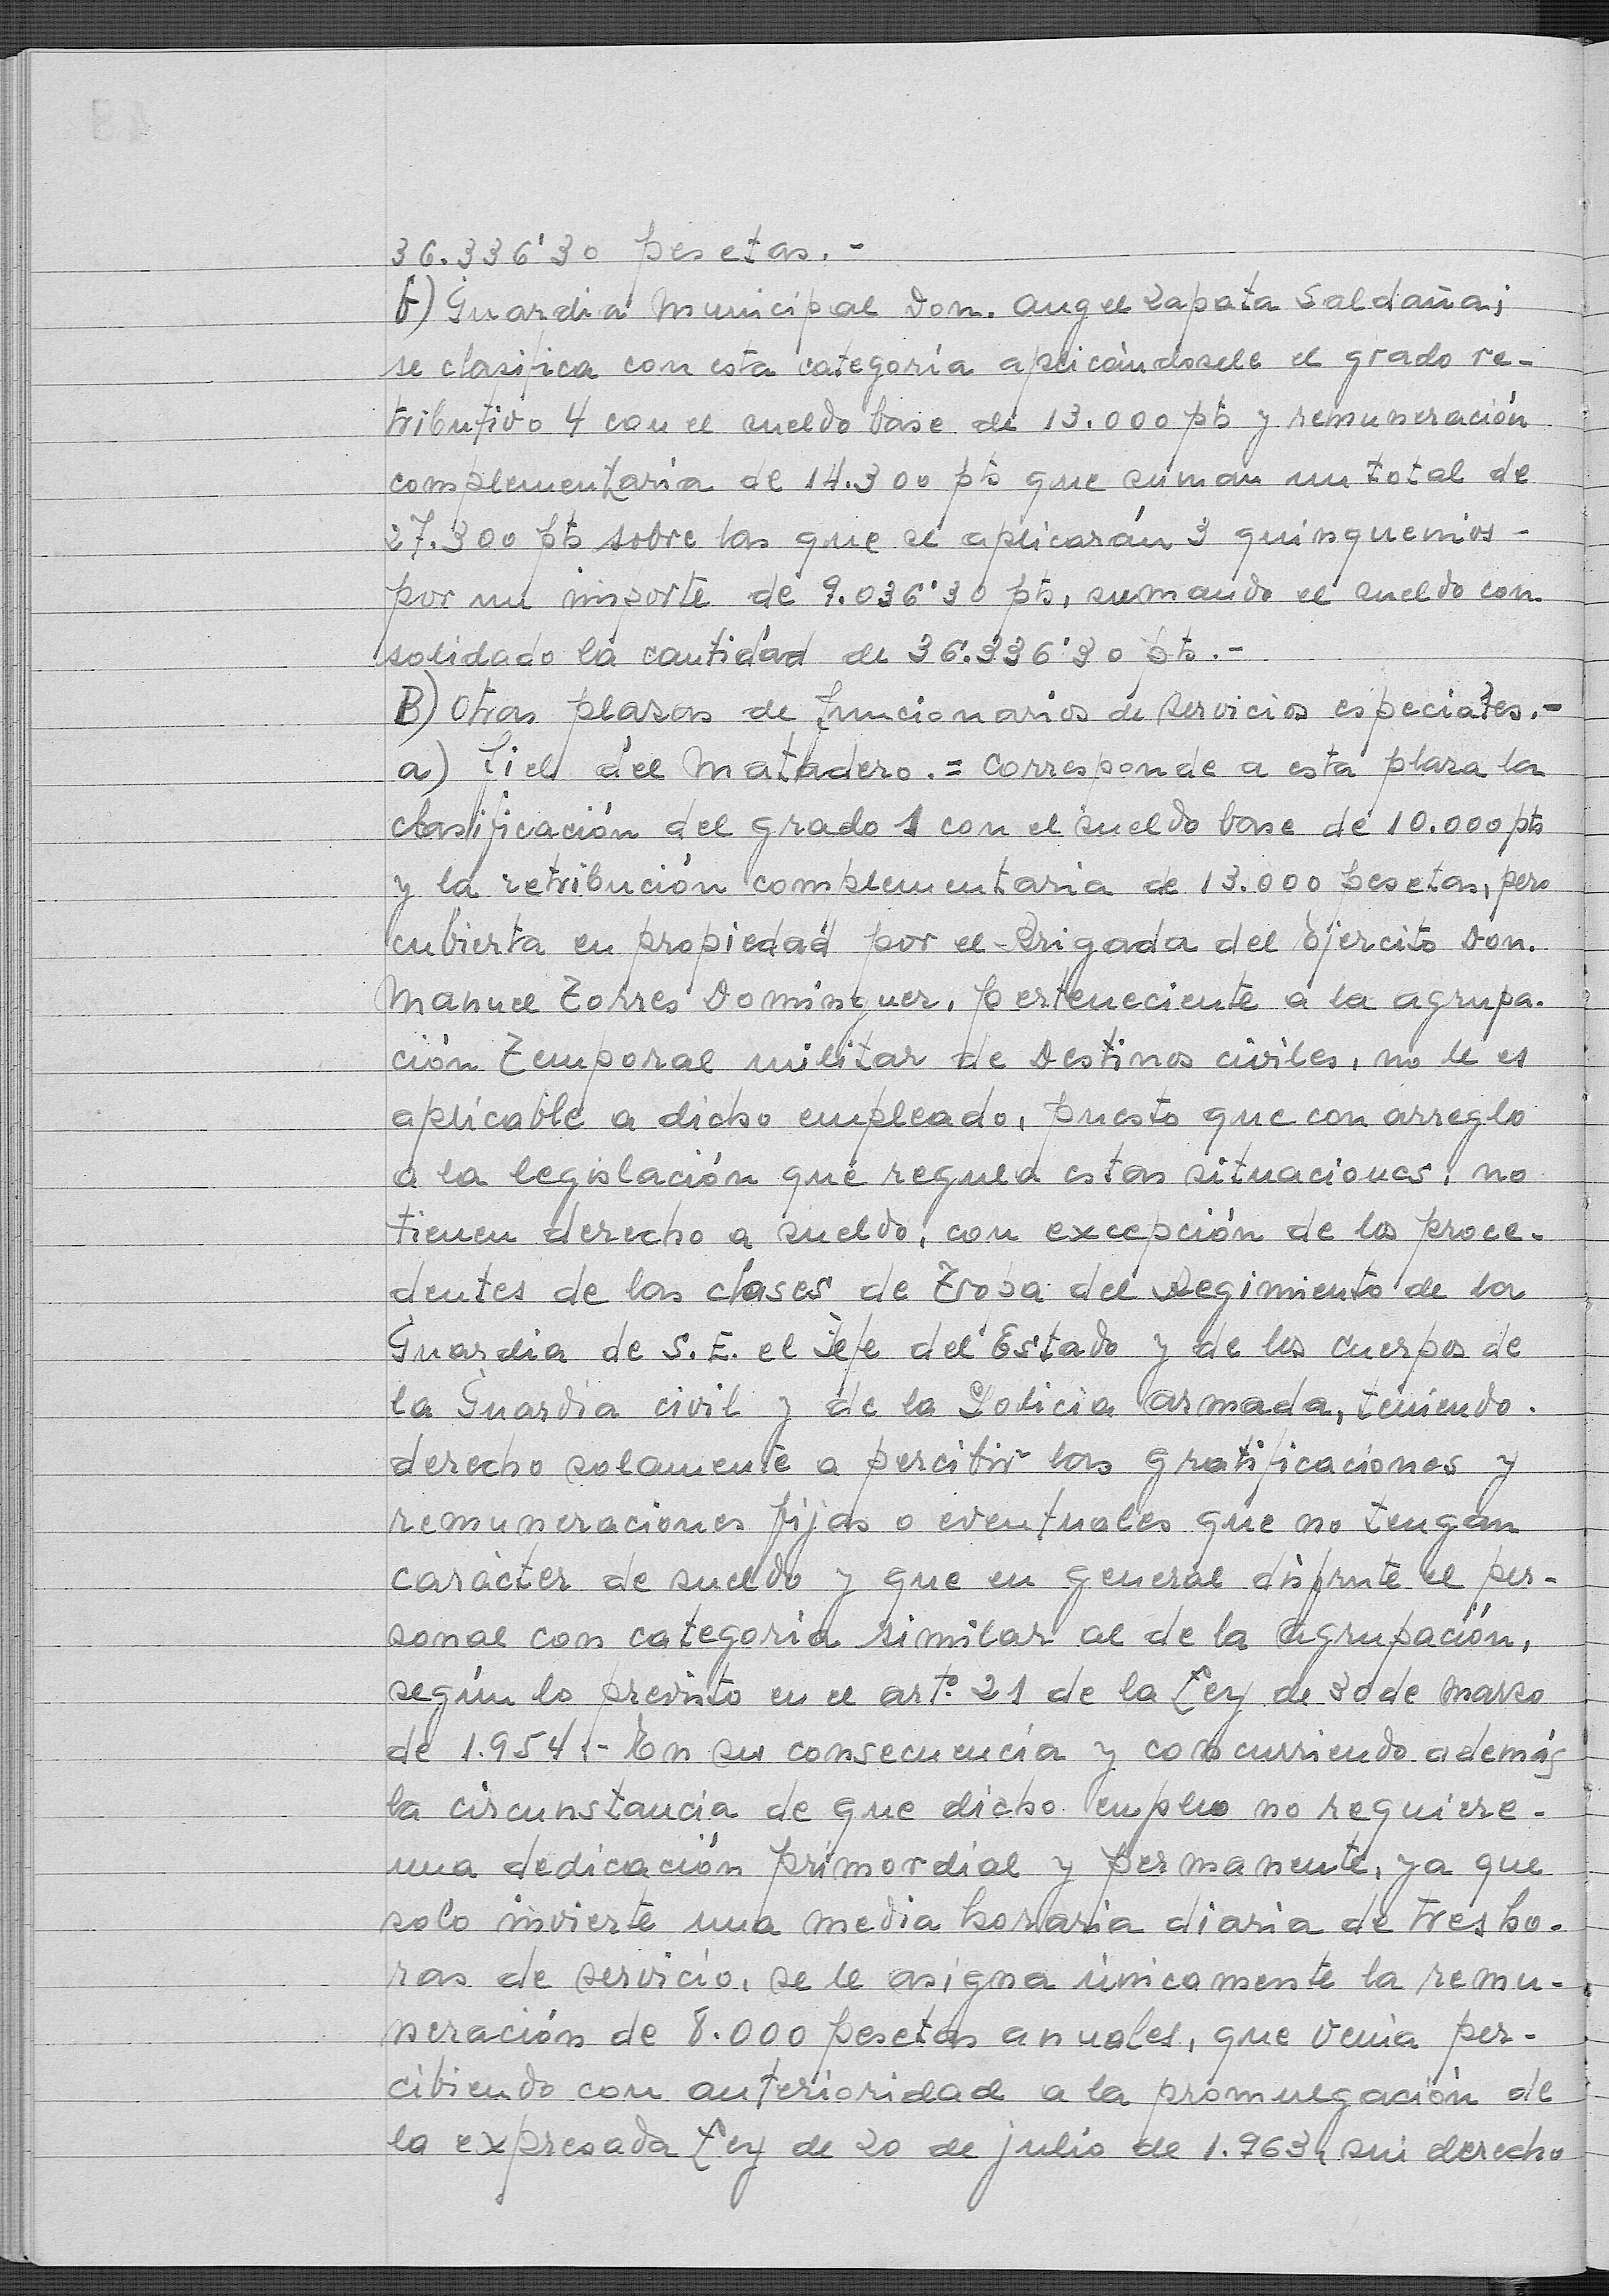 36.336'30 pesetas.-
f) Guardia Municipal Don. Angel Zapata Saldaña;
se clasifica con esta categoría aplicándosele el grado re-
tributivo 4 con el sueldo base de 13.000 pts y remuneración
complementaria de 14.300 pts que suman un total de
27.300 pts sobre las que se aplicarán 3 quinquenios-
por un importe de 9.036'30 pts, sumando el sueldo con
solidado la cantidad de 36.336'30 pts.-
B) Otras plazas de funcionarios de servicios especiales.-
a) Fiel del Matadero.= Corresponde a esta plaza la
clasificación del grado 1 con el sueldo base de 10.000 pts
y la retribución complementaria de 13.000 pesetas, pero
cubierta en propiedad por el Brigada del Ejercito Don.
Manuel Torres Dominguez, perteneciente a la agrupa-
ción Temporal militar de Destinos civiles, no le es
aplicable a dicho empleado, puesto que con arreglo
a la legislación que regula estas situaciones, no
tienen derecho a sueldo, con excepción de los proce-
dentes de las clases de Tropa del Regimiento de la
Guardia de S.E. el Jefe del Estado y de los Cuerpos de
la Guardia civil y de la Policia Armada, teniendo.
derecho solamente a percibir las gratificaciones y
remuneraciones fijas o eventuales que no tengan
carácter de sueldo y que en general disfrute el per-
sonal con categoria similar al de la Agrupación,
según lo previsto en el artº 21 de la Ley de 30 de Marzo
de 1.954.- En su consecuencia y concurriendo además
la circunstancia de que dicho empleo no requiere-
una dedicación primordial y permanente, ya que
solo invierte una media horaria diaria de tres ho-
ras de servicio, se le asigna únicamente la remu-
neración de 8.000 pesetas anuales, que venia per-
cibiendo con anterioridad a la promulgación de
la expresada Ley de 20 de julio de 1.963, sin derecho